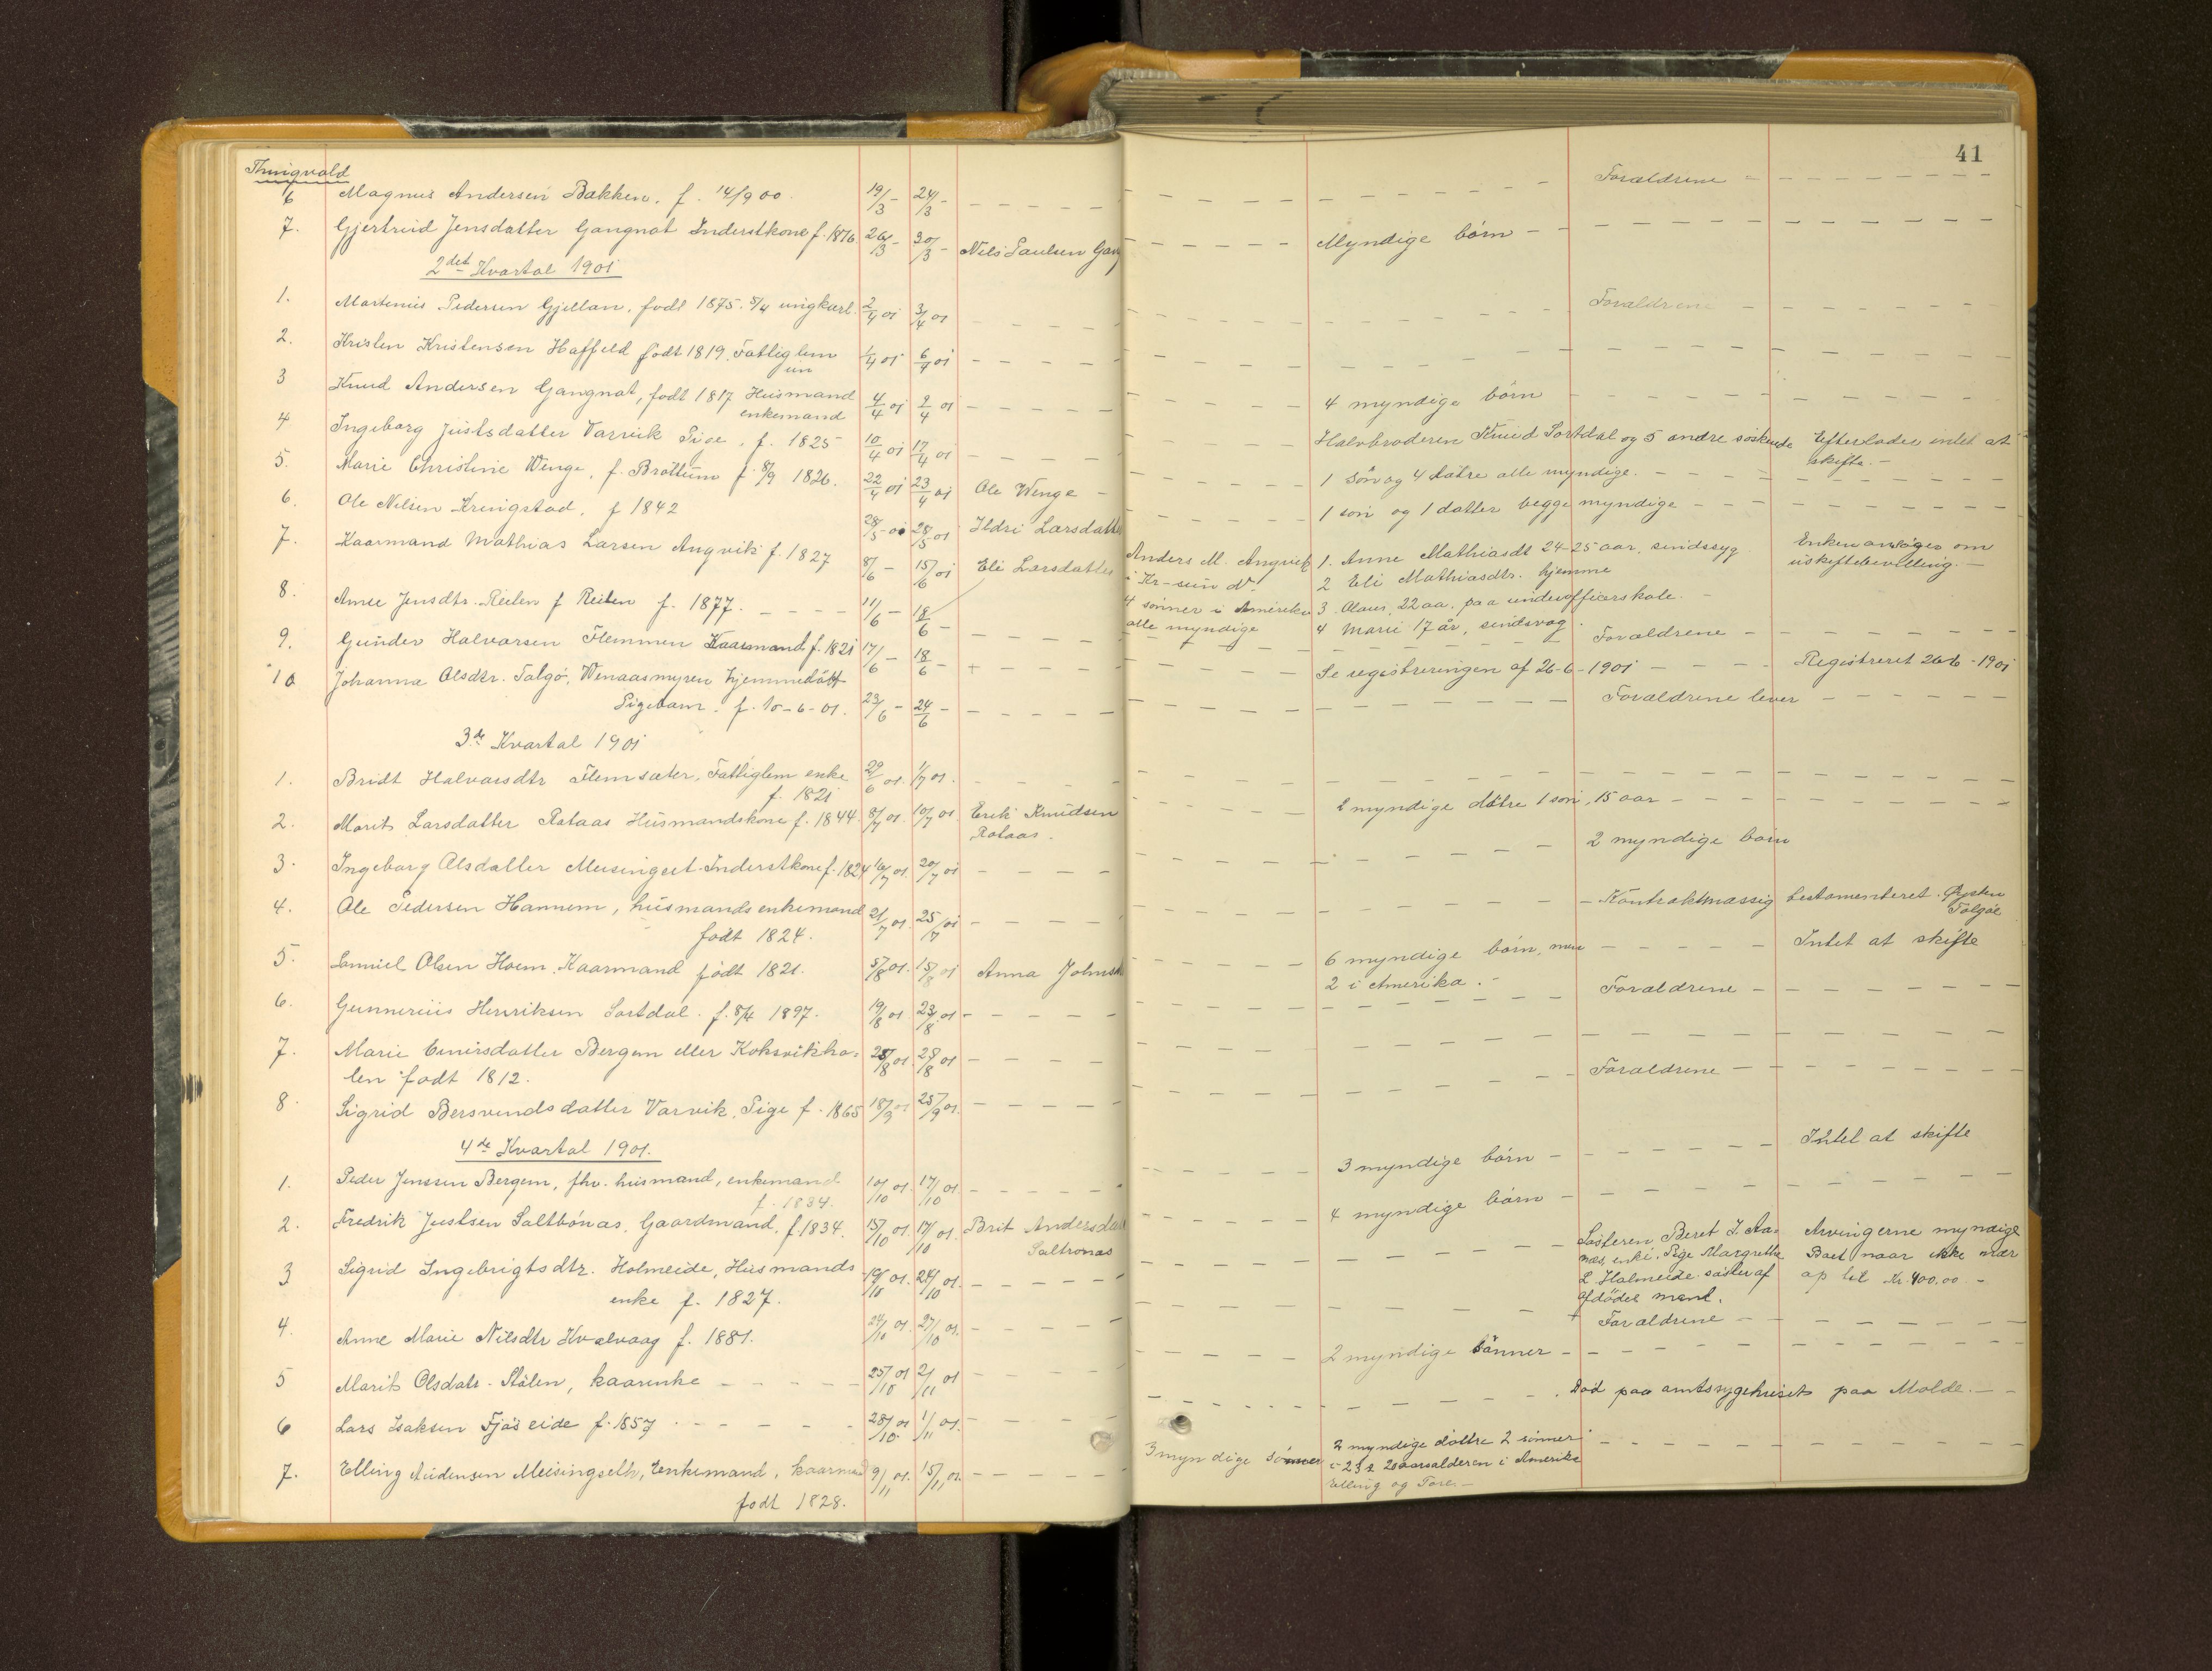 Thingvold
41
6 Magnus Andersen Bakken. f. 14/9 00. 19/3 - 24/3 - Forældrene
7. Gjertrud Jensdatter Gangnat Inderstkone f. 1876. 26/3 - 30/3 - Nils Paulsen Gang Myndige börn
2det Kvartal 1901
1. Martinus Pedersen Gjellan, født 1875. 5/4 ungkarl. 2/4 01 3/4 01 Forældrene
2. Kristen Kristensen Haffeld født 1819. Fattiglem 1/4 01 6/4 01
3 Knud Andersen Gangnat, født 1817 Husmand 4/4 01 9/4 01 4 myndige börn
enkemand
4 Ingeborg Justsdatter Varvik Pige, f. 1825 10/4 01 17/4 01 Halvbroderen Knud Sortdal og 5 andre söskende Efterlader intet at
skifte. -
5. Marie Christine Wenge, f. Brottum f. 8/9 1826. 22/4 01 23/4 01 Ole Wenge - 1 sön og 4 døtre alle myndige.
6. Ole Nilsen Kringstad, f 1842 28/5 - 01 28/5 01 Ildri Larsdatte 1 sön og 1 datter begge myndige
7. Kaarmand Mathias Larsen Angvik f. 1827 8/6 - 15/6 01 Eli Larsdatter Anders M. Angvik 1. Anne Mathiasdt 24-25 aar, sindssyg. Enken ansöges om
i Kr-sund. 2 Eli Mathiasdtr. hjemme uskiftebevilling. -
4 sönner i Amerika 3. Olaus, 22 aa. paa underofficerskole. -
alle myndige 4 Marie 17 år, sindsvag
8. Anne Jensdtr. Reiten f Reiten f. 1877. 11/6 - 18/6 - Forældrene
9. Gunder Halvorsen Flemmen Kaarmand f. 1821 17/6 - 18/6 - + Se registreringen af 26-6-1901 Registreret 26-6-1901
10 Johanna Olsdtr. Talgö, Wenaasmyren hjemmedöbt
Pigebarn. f. 10-6-01. 23/6 - 24/6 - Forældrene lever
3de Kvartal 1901
1. Bridt Halvorsdtr Flemsæter, Fattiglem enke 29/6 01. 1/7 01.
f. 1821
2. Marit Larsdatter Rotaas Husmandskone f. 1844. 8/7 01. 10/7 01 Erik Knudsen myndige døtre 1 sön, 15 aar
Rotaas.
3. Ingeborg Olsdatter Meisinget Inderstkone f. 1824 16/7 01. 20/7 01 2 myndige börn
4. Ole Pedersen Hannem, husmands enkemand 21/7 01. 25/7 01 Kontraktmæssig testamenteret. Øysten
født 1824. Talgöe
5. Samuel Olsen Hoem, Kaarmand født 1821. 5/8 01. 15/8 01 Anna Johns 6 myndige börn, Intet at skifte
2 i Amerika. -
6. Gunnerius Henriksen Sortdal. f. 8/4 1897. 19/8 01 23/8 01 Forældrene
7. Marie Bergem eller Koksvikho-
len født 1812. 28/8 01. 28/8 01
8. Sigrid Bersvendsdatter Varvik, Pige f. 1865 18/9 01 25/9 01. Forældrene
4de Kvartal 1901.
1. Peder Jensen Bergem, fhv. husmand, enkemand 10/10 01. 17/10 01. 3 myndige börn Intet at skifte
f. 1834.
2. Fredrik Justsen Saltbönæs, Gaardmand, f. 1834. 15/10 01. 17/10 01. Brit Andersda 4 myndige börn
Saltrönæs
3 Sigrid Ingebrigtsdtr. Holmeide, Husmands 19/10 01. 24/10 01. Søsteren Beret I. Aa- Arvingerne myndige
enke f. 1827. næs, enke. Pige Margrethe Boet naar ikke mær
L Holmeide söster af op til Kr. 400.00 -
afdödes mand.
4. Anne Marie Nilsdtr Kvalvaag f. 1881. 24/10 01. 27/10 01. Forældrene
5 Marit Olsdatr. Stölen, kaarenke 25/10 01 2/11 01 2 myndige sönner
6 Lars Isaksen Fjöseide f. 1857 28/10 01 1/11 01. Död paa amtssygehuset paa Molde.
7. Elling Audensen Meisingseth, Enkemand, kaarmand 9/11 01. 15/11 01. 3 myndige sönner 2 myndige döttre 2 sönner
født 1828. i Amerika
Elling og Tore. -